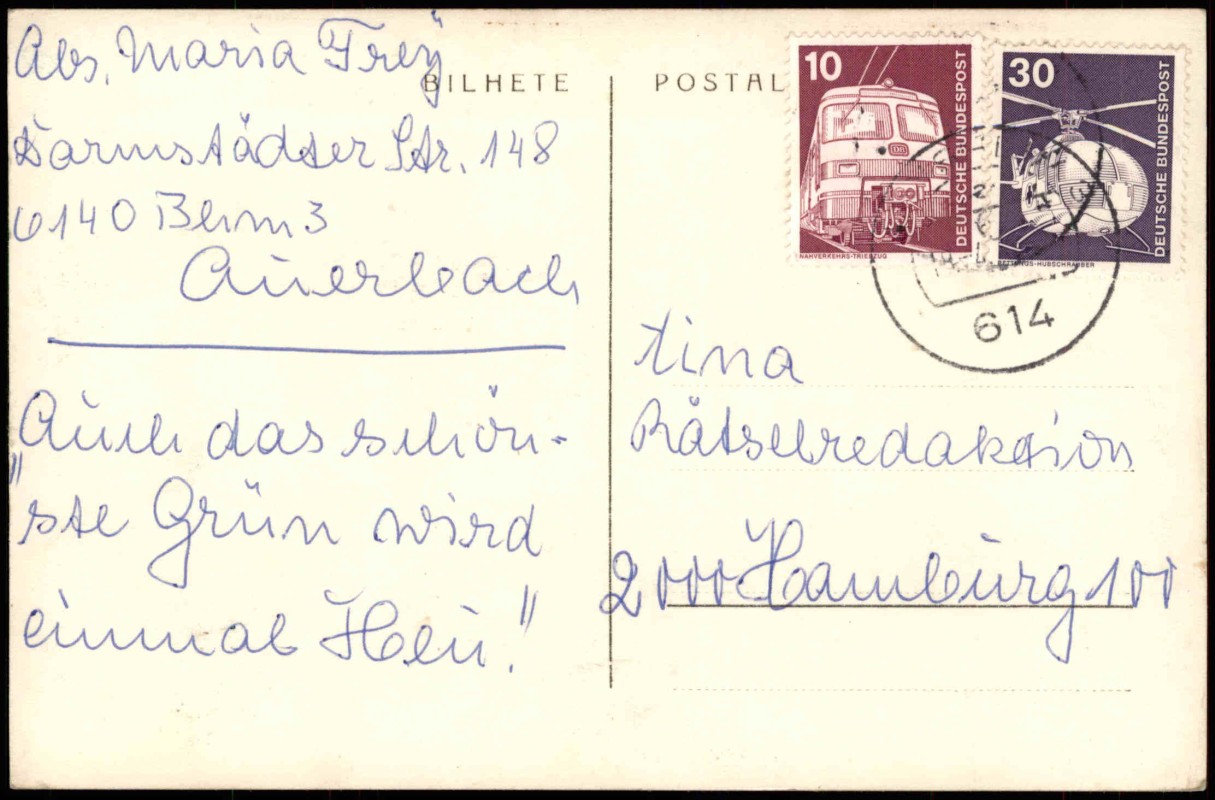 Abs. Maria Frey
Darmstädter Str. 148
6140 Bensh 3
Auerbach
„Auch das schön-
ste Grün wird
einmal Heu!"
BILHETE POSTAL
10
DEUTSCHE BUNDESPOST
NAHVERKEHRS-TRIEBZUG
30
DEUTSCHE BUNDESPOST
RETTUNGS-HUBSCHRAUBER
614
tina
Rätselredaktion
2000 Hamburg 100